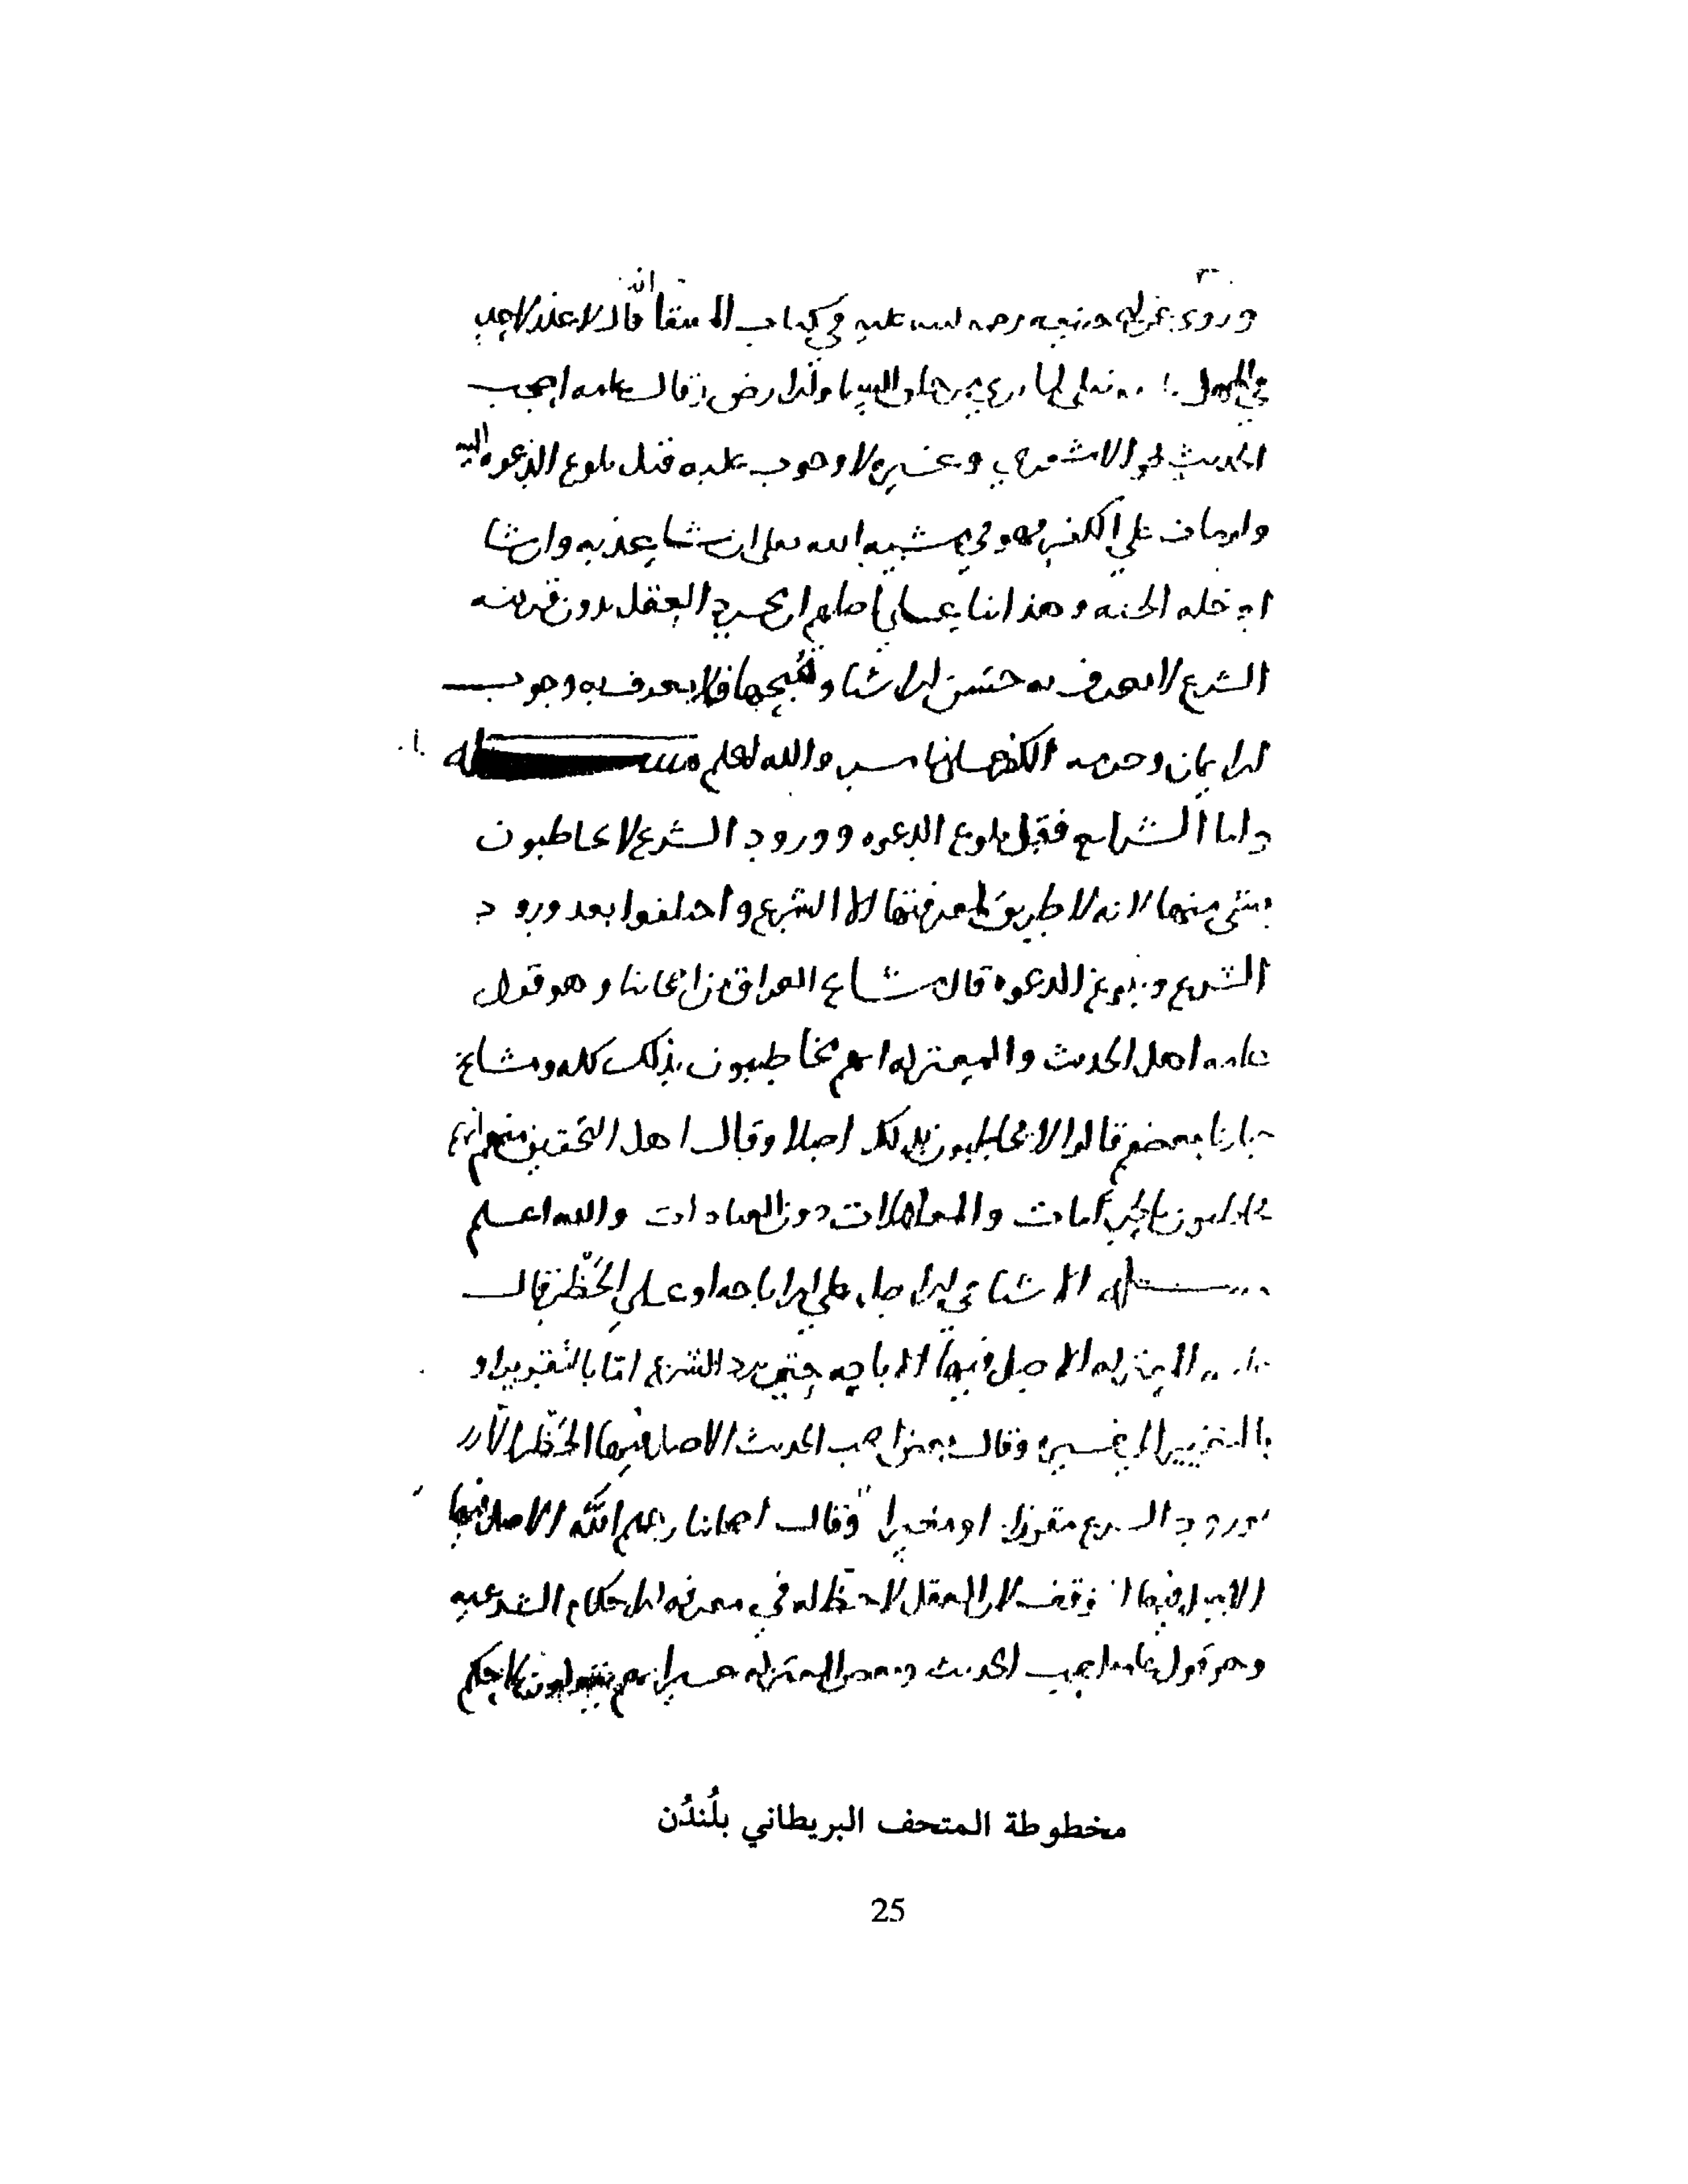 وروى عن ابي حنيفه رحمه الله عليه في كتاب المنتقا انه قال لا عذر لاحد
في الجهل
الحديث الاشعري وغيره لا وجوب عليه قبل بلوغ الدعوه اليه
ولو مات على الكفر فهو في مشيه الله تعلى ان شا عذبه وان شا
ادخله الجنه وهذا بنا على اصلهم ان مجرد العقل بدون قرينه
الشرع لا يعرف به حسن الاشيا وقبحها فلا يعرف به وجوب
الايمان وحرمه الكفر والله اعلم مسله
واما الشرايع فقبل بلوغ الدعوه وورود الشرع لا يخاطبون
بشي منها لانه لا طريق لمعرفتها الا الشرع واختلفوا بعد ورود
الشرع وبلوغ الدعوه قال مشايخ العراق من اصحابنا وهو قول
عامه اهل الحديث والمعتزله انهم مخاطبون بذلك كله ومشايخ
ديارنا بعضهم قالوا لا يخاطبون بذلك اصلا وقال اهل التحقيق منهم انهم
يخاطبون بالحرمات والمعاملات دون العبادات والله اعلم
مسله الاشيا في الاصل على الاباحه او على الحظر قال
المعتزله الاصل فيها الاباحه حتى يرد الشرع امّا بالتقرير او
بالتغيير الى غيره وقال بعض اصحب الحديث الاصل فيها الحظر الا
بورود الشرع مقررا او مغيرا وقال اصحابنا رحمهم الله الاصل فيها
التوقف لان العقل لا حظ له في معرفه الاحكام الشرعيه
وهو قول عامه اصحب الحديث وبعض المعتزله غير انهم يقولون لا حكم
مخطوطة المتحف البريطاني بلُندُن
25